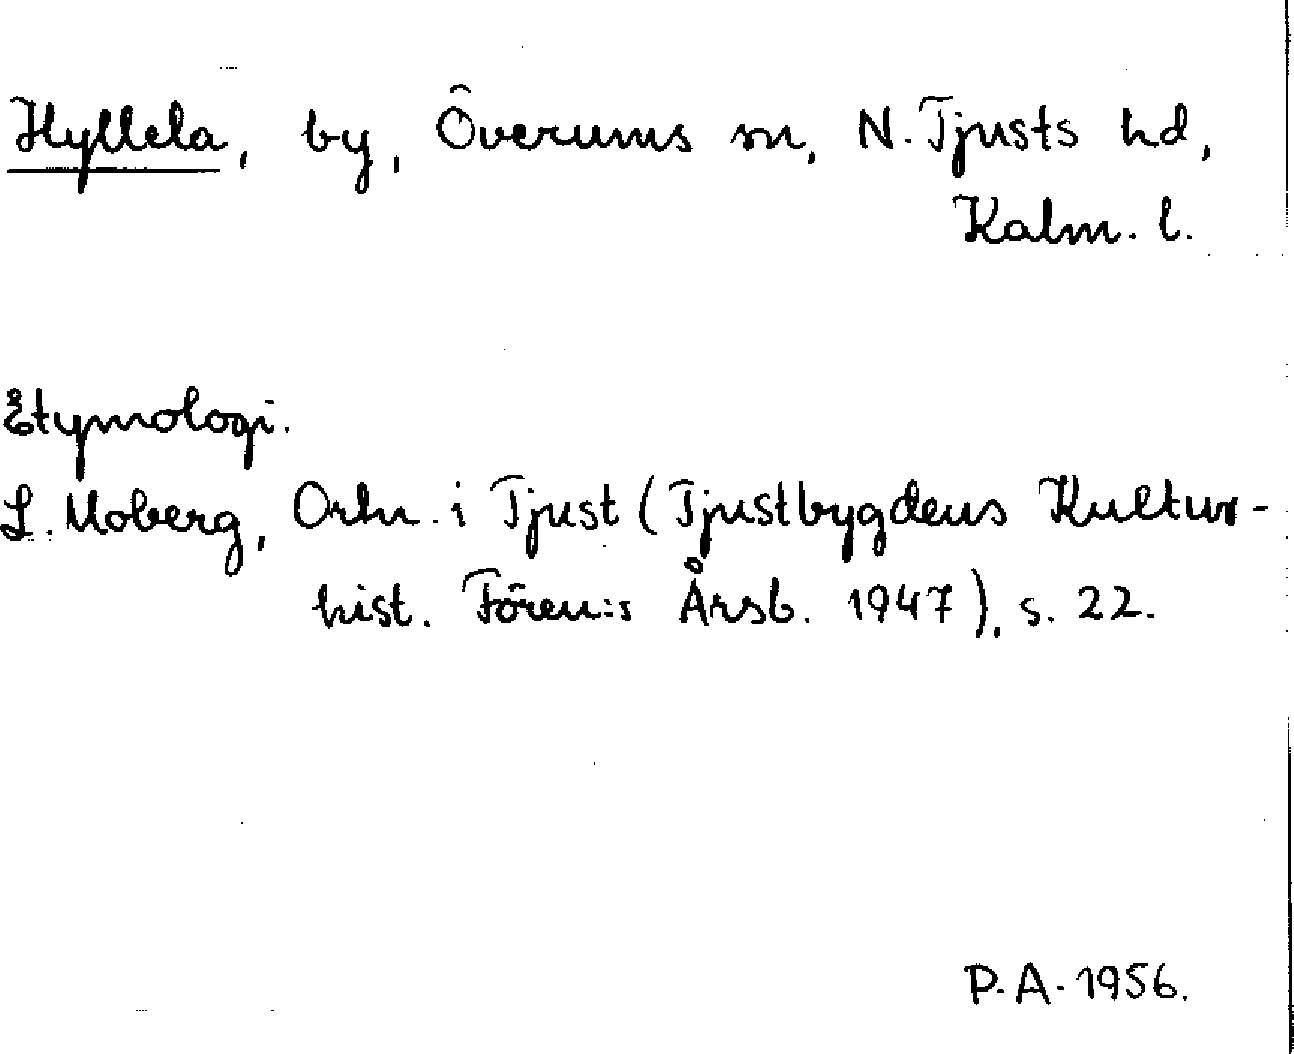 Hyllela, by, Överums sn, N. Tjusts hd,
Kalm. l.
Etymologi.
L. Moberg, Ortn. i Tjust (Tjustbygdens Kultur-
hist. Fören:s Årsb. 1947), s. 22.
P. A. 1956.